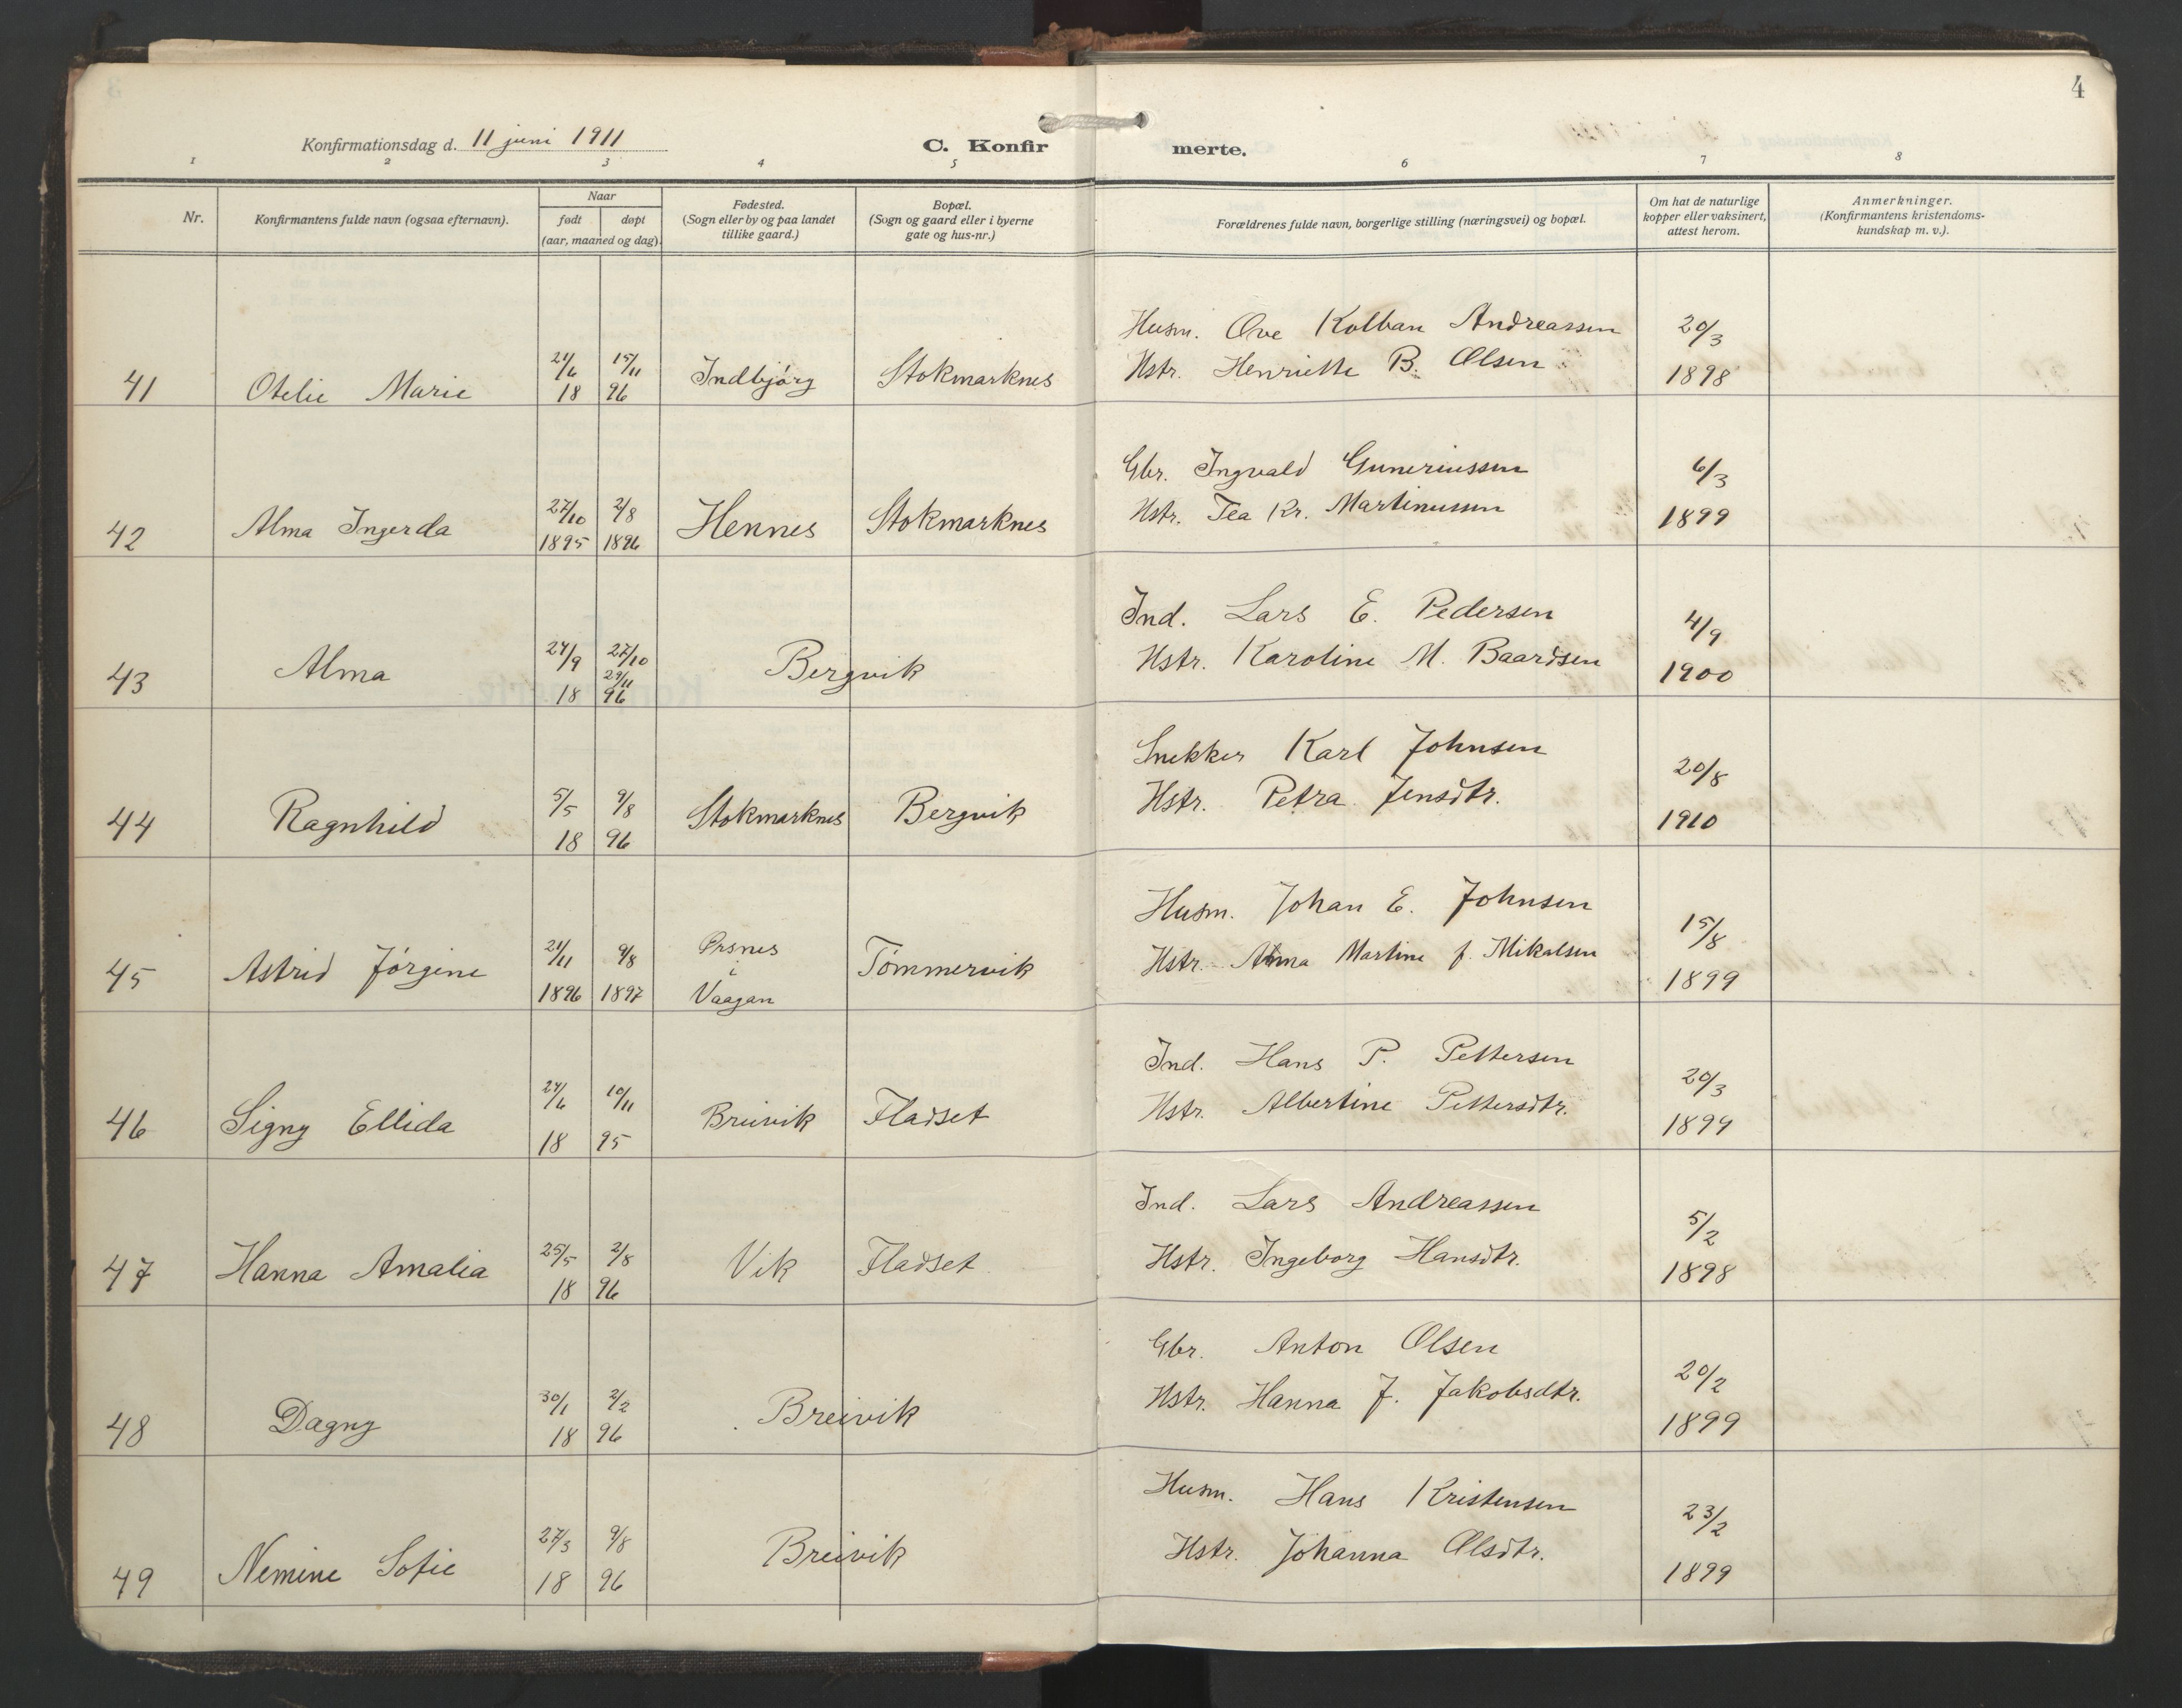 4
Konfirmationsdag d. 11 juni 1911
C. Konfirmerte.
1 2 3 4 5 6 7 8
Nr.
Konfirmantens fulde navn (ogsaa efternavn).
Naar
født døpt
(aar, maaned og dag).
Fødested.
(Sogn eller by og paa landet
tillike gaard.)
Bopæl.
(Sogn og gaard eller i byerne
gate og hus-nr.)
Forældrenes fulde navn, borgerlige stilling (næringsvei) og bopæl.
Om hat de naturlige
kopper eller vaksinert,
attest herom.
Anmerkninger.
(Konfirmantens kristendoms-
kundskap m. v.).
41 Otelie Marie 21/6 15/11 18 96 Indbjørg Stokmarknes
Husm. Ove Kolban Andreassen
Hstr. Henriette B. Olsen
20/3
1898
42 Alma Ingerda 27/10 1895 2/8 1896 Hennes Stokmarknes
Gbr. Ingvald Guneriussen
Hstr. Tea Kr. Martinussen
6/3
1899
43 Alma 24/9 27/10 29/11 18 96 Bergvik
Ind. Lars E. Pedersen
Hstr. Karoline M. Baardsen
4/9
1900
44 Ragnhild 5/5 9/8 18 96 Stokmarknes Bergvik
Snekker Karl Johnsen
Hstr. Petra Jensdtr.
20/8
1910
45 Astrid Jørgine 21/11 1896 9/8 1897 Ørsnes i Vaagan Tømmervik
Husm. Johan E. Johnsen
Hstr. Anna Martine f. Mikalsen
15/8
1899
46 Signy Ellida 24/6 10/11 18 95 Breivik Fladset
Ind. Hans P. Pettersen
Hstr. Albertine Pettersdtr.
20/3
1899
47 Hanna Amalia 25/5 2/8 18 96 Vik Fladset
Ind. Lars Andreassen
Hstr. Ingeborg Hansdtr.
5/2
1898
48 Dagny 30/1 2/2 18 96 Breivik
Gbr. Anton Olsen
Hstr. Hanna J. Jakobsdtr.
20/2
1899
49 Nemine Sofie 27/3 9/8 18 96 Breivik
Husm. Hans Kristensen
Hstr. Johanna Olsdtr.
23/2
1899